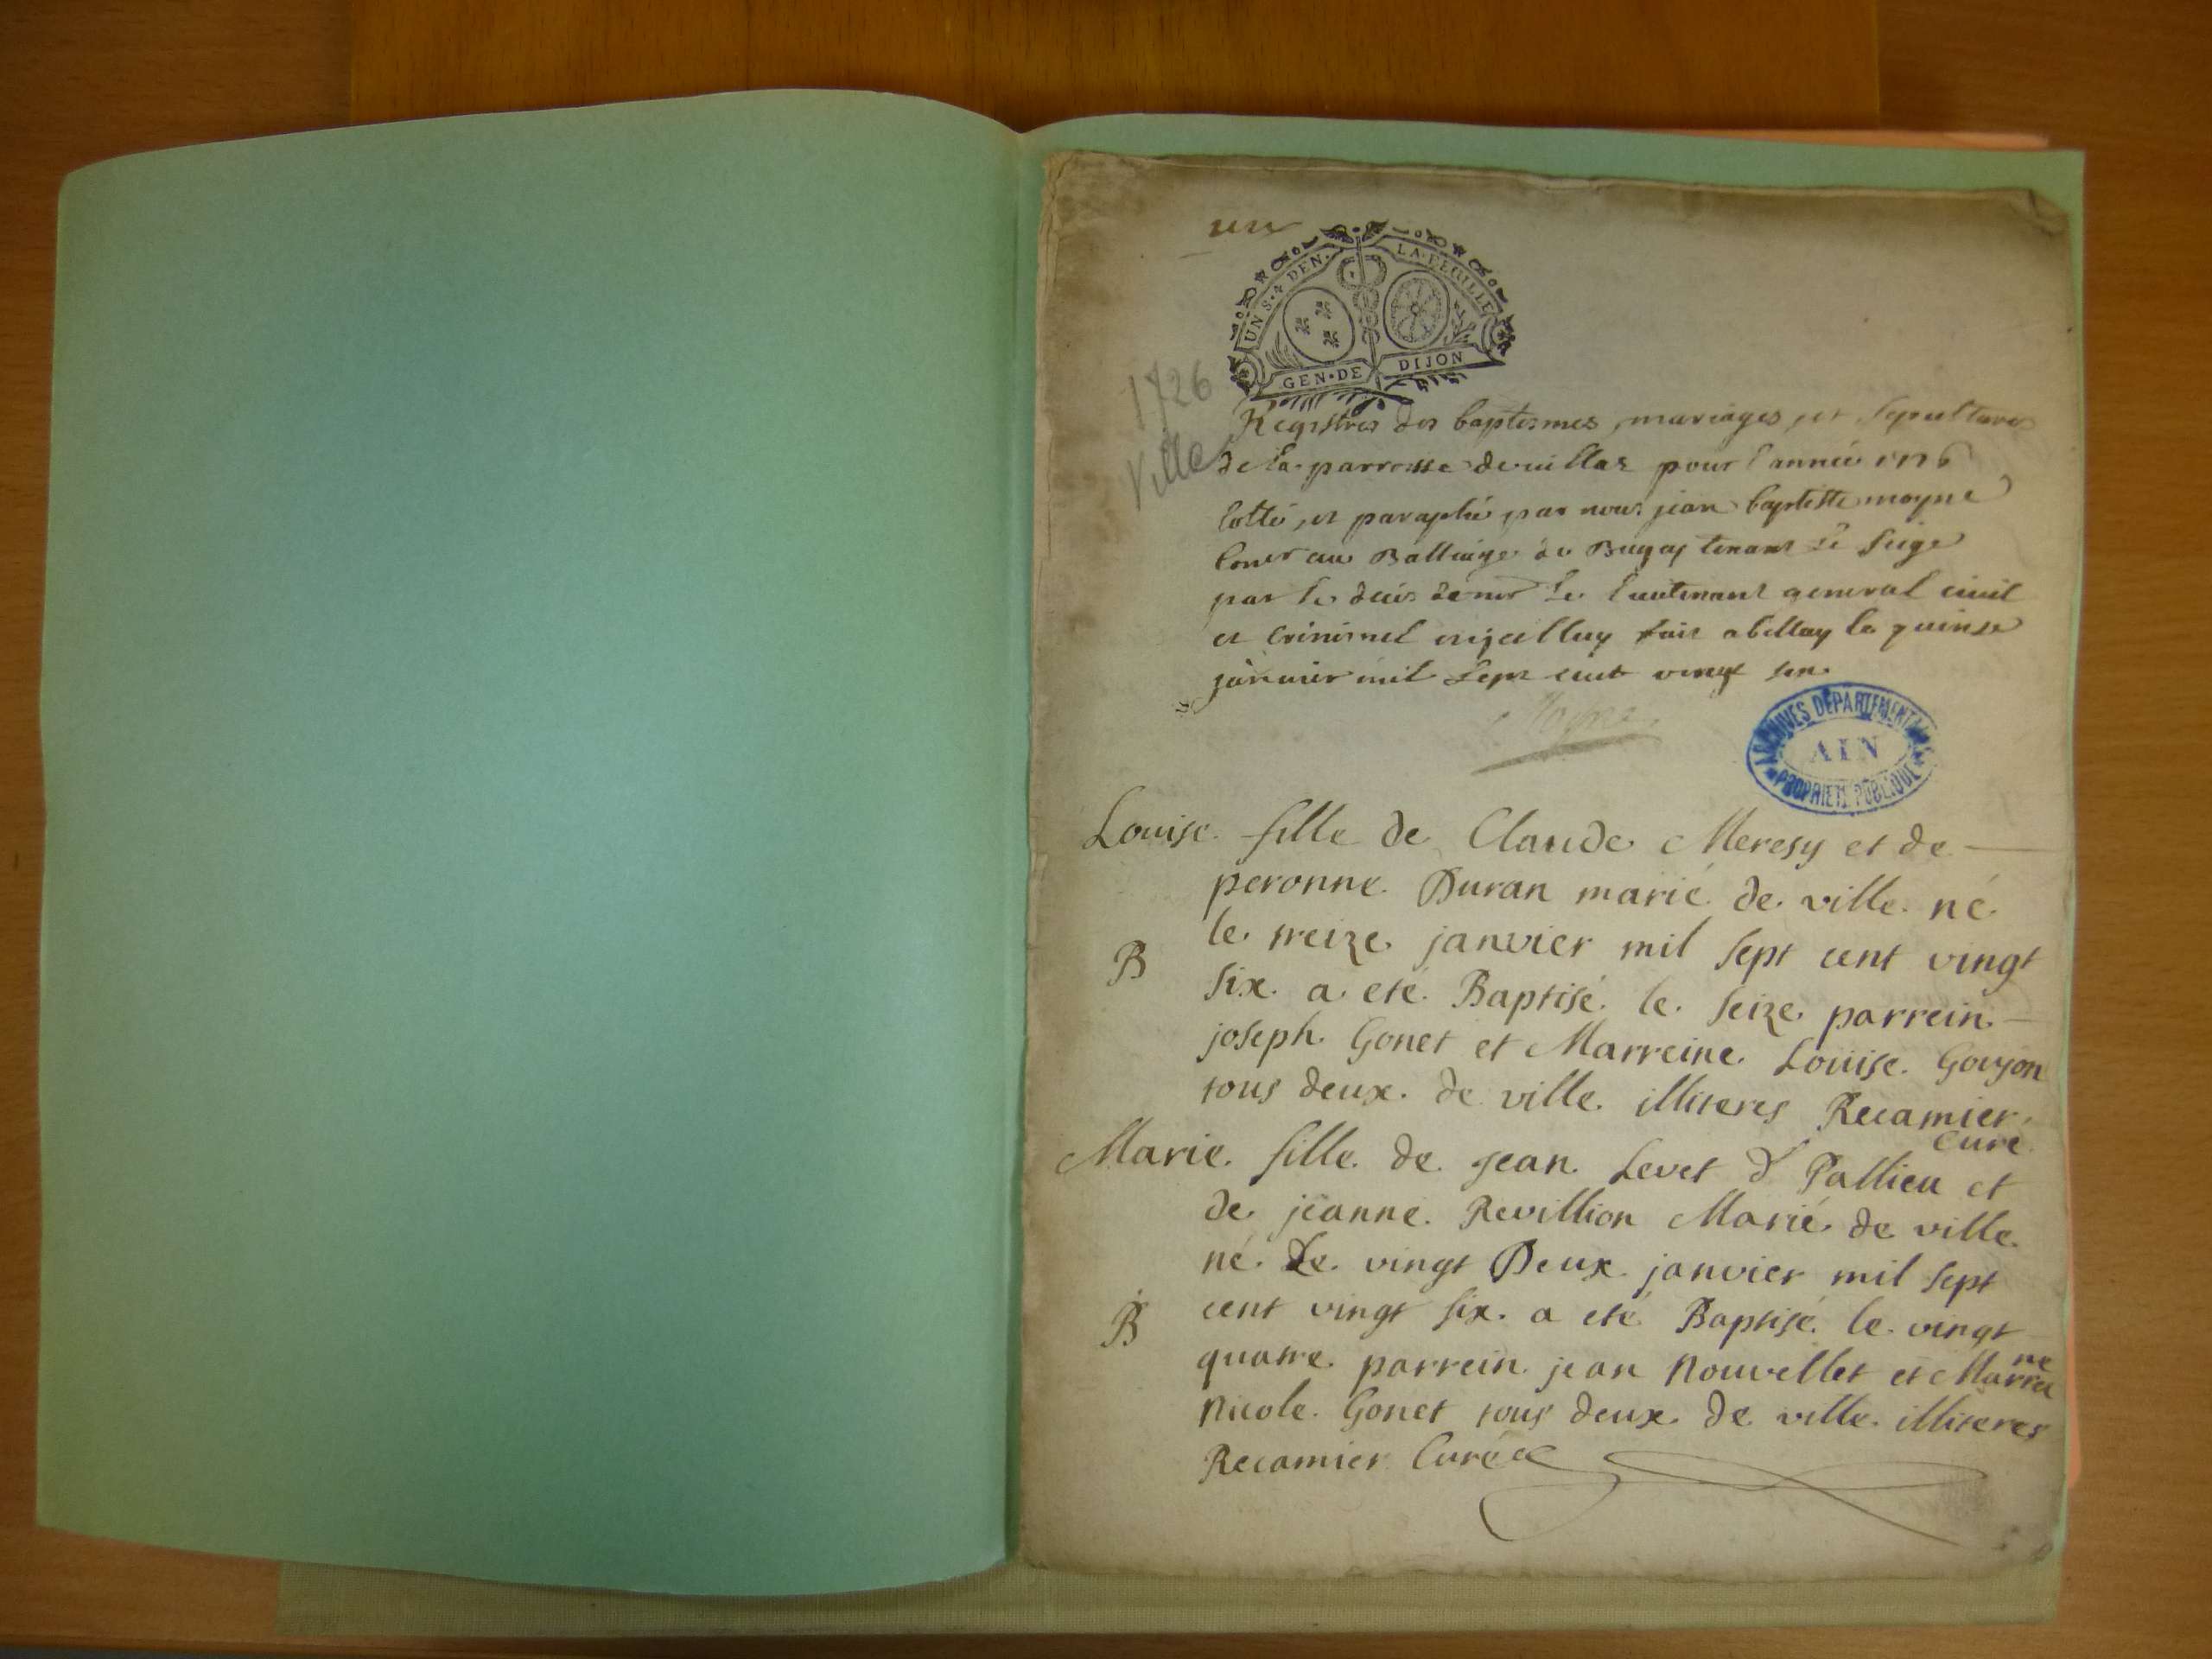 un
UN S. 4 DEN. LA FEUILLE
GEN. DE DIJON
1726
Registres des baptesmes, mariages, et sepultures
Villes
de la parroisse de villas pour l'année 1726
Cotté, et paraphé par nous jean baptiste moyne
Conser au Balliage de Bugey tenant le siege
par le deces de mr le lieutenant general civil
et Criminel en jcelluy fait a bellay le quinse
janvier mil sept cent vingt six.
Moyne
ARCHIVES DÉPARTEMENTALES
AIN
PROPRIÉTÉ PUBLIQUE
Louise. fille de Claude Meresy et de
peronne. Duran marié de ville. né
le. treize janvier mil sept cent vingt
B
six. a eté. Baptisé. le. seize. parrein.
joseph. Gonet et Marreine. Louise. Goujon
tous deux. de ville. illiteres Recamier.
Curé.
Marie. fille. de. jean. Levet d Pallieu et
de jeanne. Revillion Marié. de ville.
né. Le. vingt Deux. janvier mil sept
B
cent vingt six. a eté Baptisé. le. vingt
quatre. parrein. jean Nouvellet et Marreine
Nicole. Gonet tous deux. de ville. illiteres
Recamier Curé